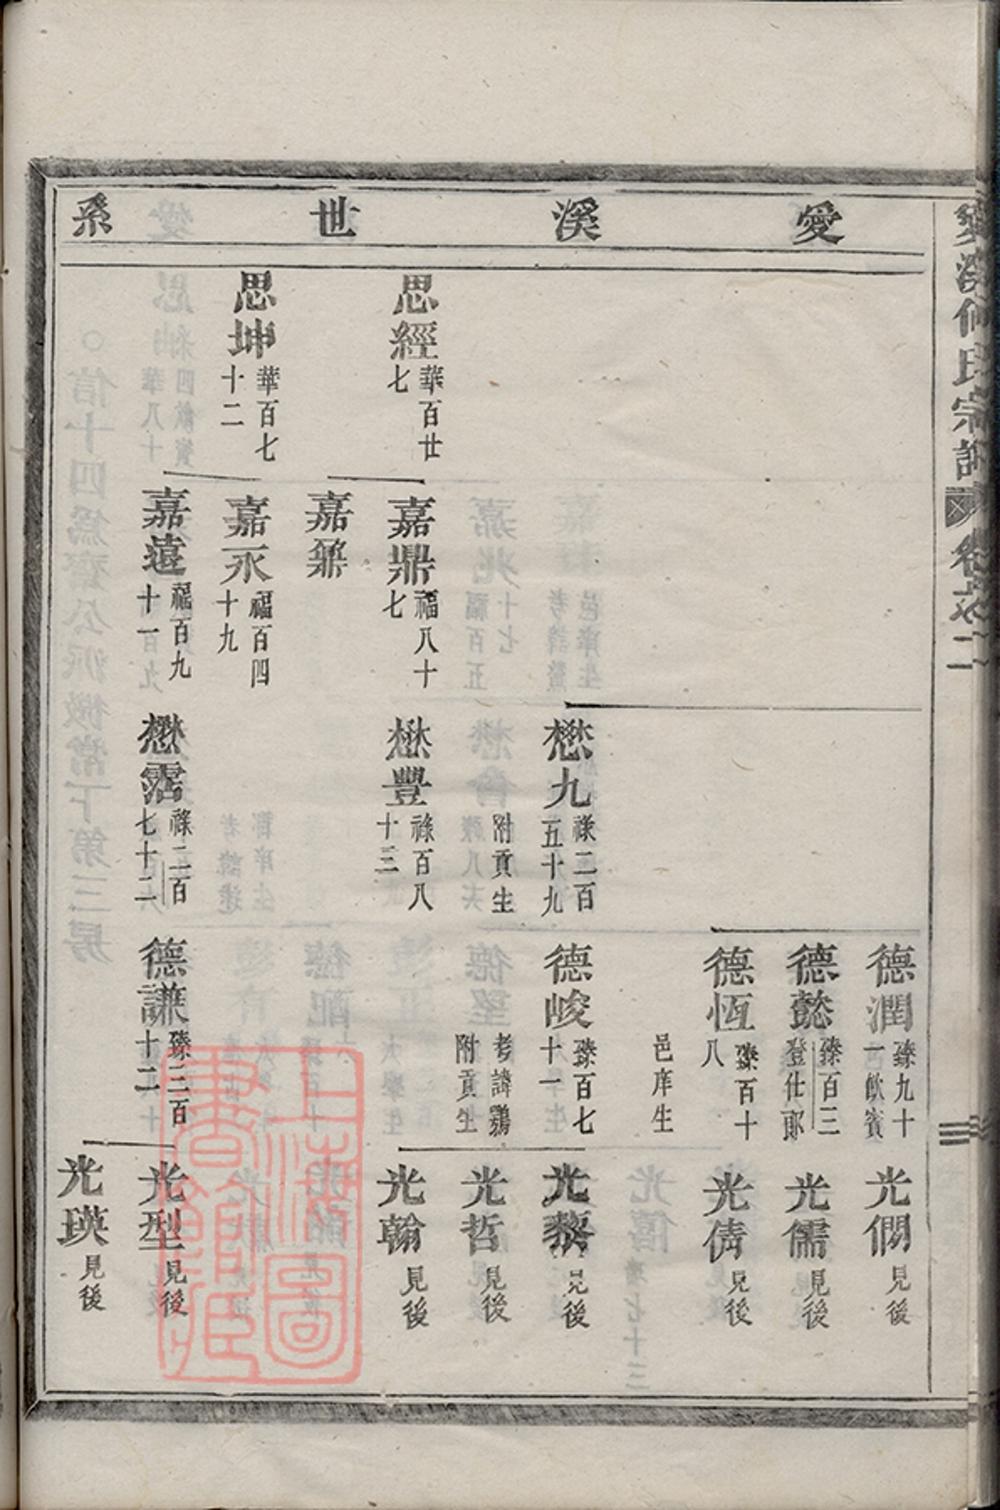 愛溪世系
思經 華百廿七
思坤 華百七十二
嘉鼎 福八十七
嘉鼐
嘉永 福百四十九
嘉遠 福百九十一
懋九 祿二百五十九 附貢生
懋豐 祿百八十三
懋霑 祿二百七十二
德潤 臻九十一 飲賓
德懿 臻百三 登仕郎
德恆 臻百十八 邑庠生
德峻 臻百七十一 考諱鷃 附貢生
德謙 臻二百十二
光僩 見後
光儒 見後
光儔 見後
光黎 見後
光哲 見後
光翰 見後
光型 見後
光瑛 見後
愛溪何氏宗譜 卷之二
上海圖書館藏